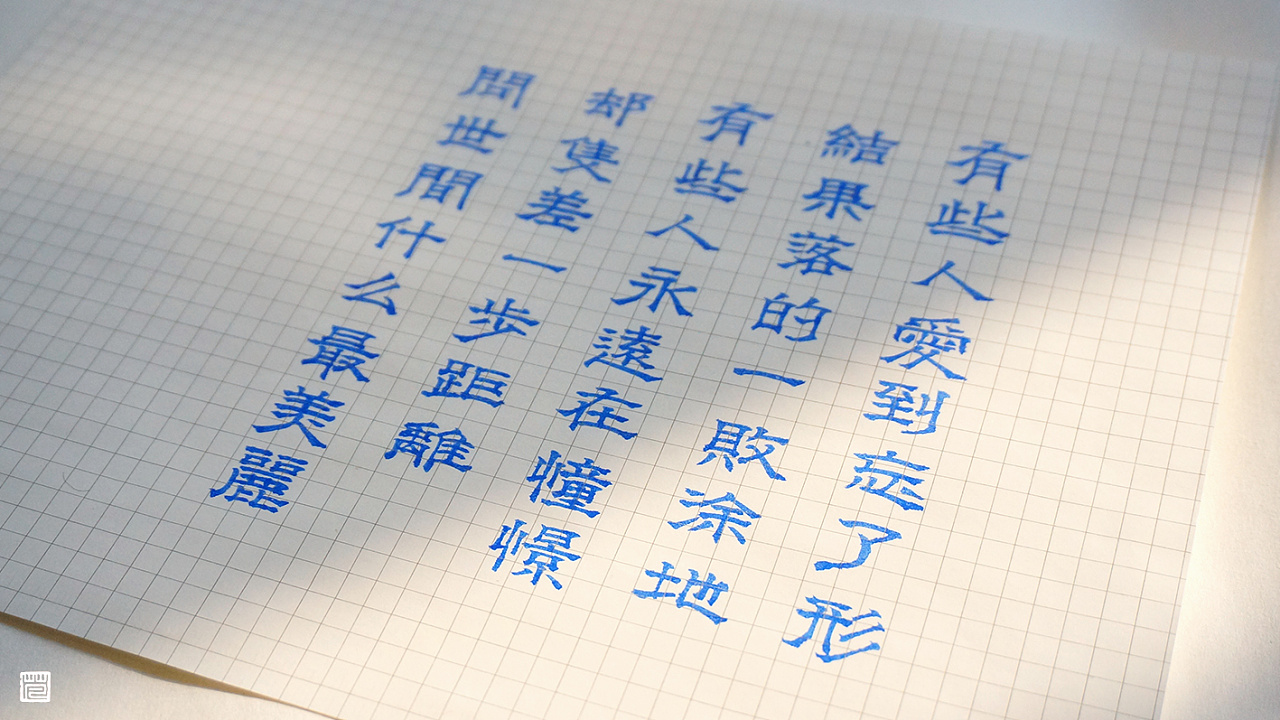 有些人愛到忘了形
結果落的一敗涂地
有些人永遠在憧憬
却隻差一步距離
問世間什么最美麗